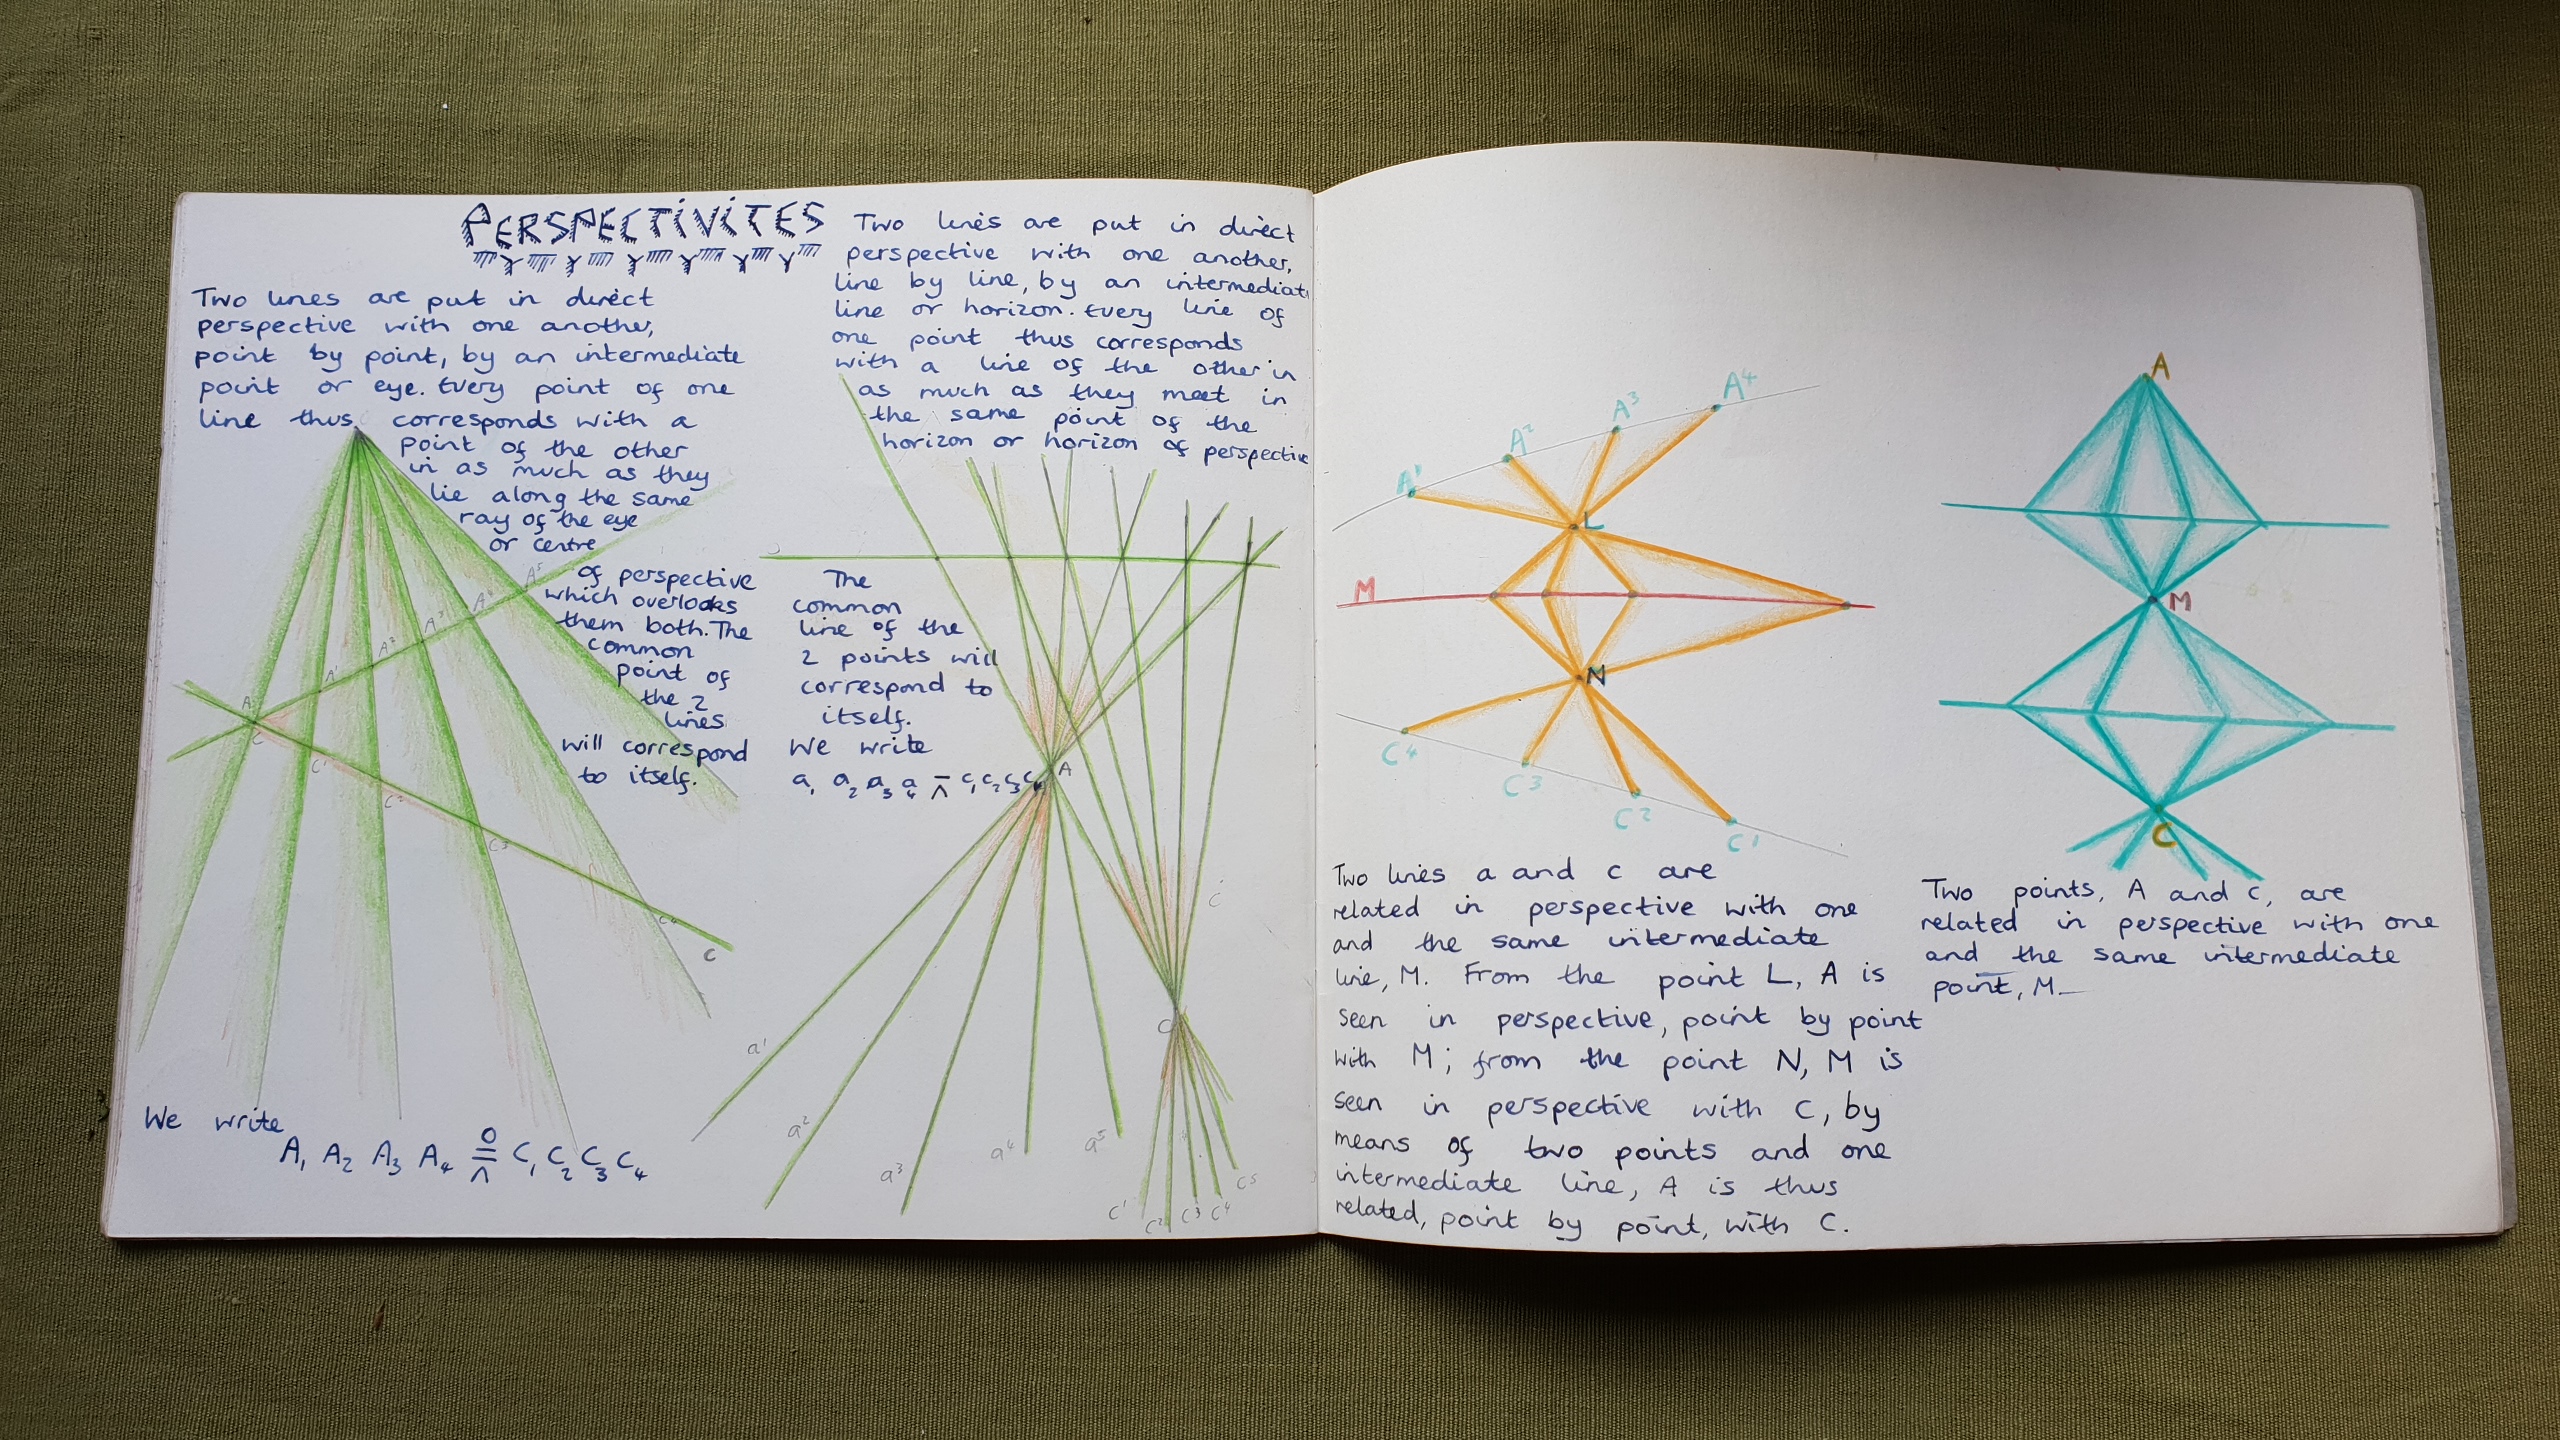 PERSPECTIVITES
Two lines are put in direct
perspective with one another,
point by point, by an intermediate
point or eye. Every point of one
line thus corresponds with a
point of the other
in as much as they
lie along the same
ray of the eye
or centre
of perspective
which overlooks
them both. The
common
point of
the 2
lines
will correspond
to itself.
A A¹ A² A³ A⁴ A⁵
C C¹ C² C3 C4
C
We write
A₁ A₂ A₃ A₄ C₁ C₂ C₃ C₄
Two lines are put in direct
perspective with one another,
line by line, by an intermediat
line or horizon. Every line of
one point thus corresponds
with a line of the other in
as much as they meet in
the same point of the
horizon or horizon of perspective
The
common
line of the
2 points will
correspond to
itself.
We write
a₁ a₂ a₃ a₄ ⊼ c₁ c₂ c₃ c₄
A
C
a¹ a² a³ a⁴ a⁵
C¹ C² C3 C4 C5
A¹ A² A³ A⁴
L
M
N
C4 C3 C2 C1
Two lines a and c are
related in perspective with one
and the same intermediate
line, M. From the point L, A is
seen in perspective, point by point
with M; from the point N, M is
seen in perspective with C, by
means of two points and one
intermediate line, A is thus
related, point by point, with C.
A
M
C
Two points, A and C, are
related in perspective with one
and the same intermediate
point, M